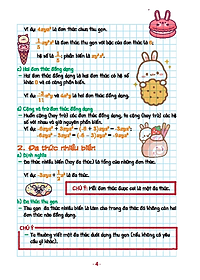 Ví dụ: 4xyz² là đơn thức thu gọn.
là đơn thức thu gọn với bậc của đơn thức là
hệ số là phần biến là
c) Hai đơn thức đồng dạng
- Hai đơn thức đồng dạng là hai đơn thức có hệ số
khác 0 và có cùng phần biến.
Ví dụ: là hai đơn thức đồng dạng.
d) Cộng và trừ đơn thức đồng dạng
- Muốn cộng (hay trừ) các đơn thức đồng dạng, ta cộng (hay trừ) các hệ
số với nhau và giữ nguyên phần biến.
Ví dụ:
2. Đa thức nhiều biến
a) Định nghĩa
- Đa thức nhiều biến (hay đa thức) là tổng của những đơn thức.
Ví dụ: là đa thức.
CHÚ Ý: Mỗi đơn thức được coi là một đa thức.
b) Đa thức thu gọn
- Thu gọn đa thức nhiều biến là làm cho trong đa thức đó không còn hai
đơn thức nào đồng dạng.
CHÚ Ý
- Ta thường viết một đa thức dưới dạng thu gọn (nếu không có yêu
cầu gì khác).
- 4 -